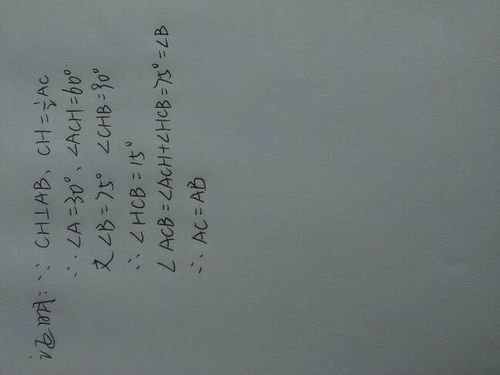 证明:∵ CH⊥AB、CH=½AC
∴ ∠A=30°、∠ACH=60°
又 ∠B=75° ∠CHB=90°
∴ ∠HCB=15°
∠ACB=∠ACH+∠HCB=75°=∠B
∴ AC=AB